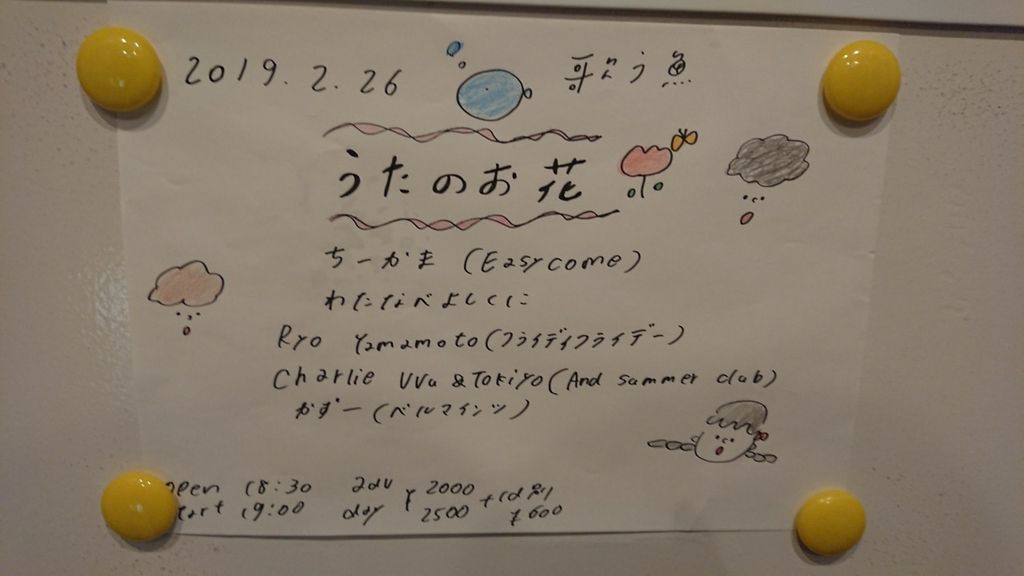 2019.2.26 歌う魚
うたのお花
ちーかま (Easycome)
わたなべよしくに
Ryo Yamamoto (フライデイフライデー)
Charlie VVu & Tokiyo (And summer club)
かずー (ベルマインツ)
open 18:30 adv ¥2000 +1d別
start 19:00 day 2500 ¥600